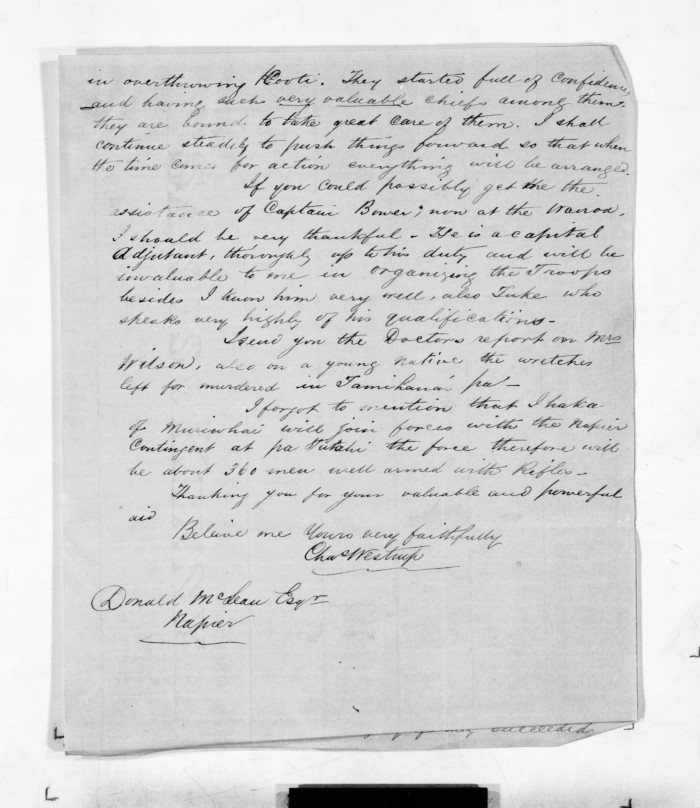 in overthrowing Kooti. They started full of Confidence,
and having such very valuable chiefs among them.
they are bound to take great care of them. I shall
continue steadily to push things forward so that when
the time comes for action everything will be arranged.
If you could possibly get the the
assistance of Captain Bower, now at the Wairoa,
I should be very thankful - He is a capital
Adjutant, thoroughly up to his duty and will be
invaluable to me in organizing the Troops
besides I know him very well, also Tuke who
speaks very highly of his qualifications -
I send you the Doctors report on Mrs
Wilson, also on a young native the wretches
left for murdered in Tamihana's pa -
I forgot to mention that Ihaka
of Muriwhai will join forces with the Napier
Contingent at pa Tutahi the force therefore will
be about 360 men well armed with Rifles -
Thanking you for your valuable and powerful
aid
Beleive me Yours very faithfully
Chas Westrup
Donald McLean Esqr
Napier
may succeeded